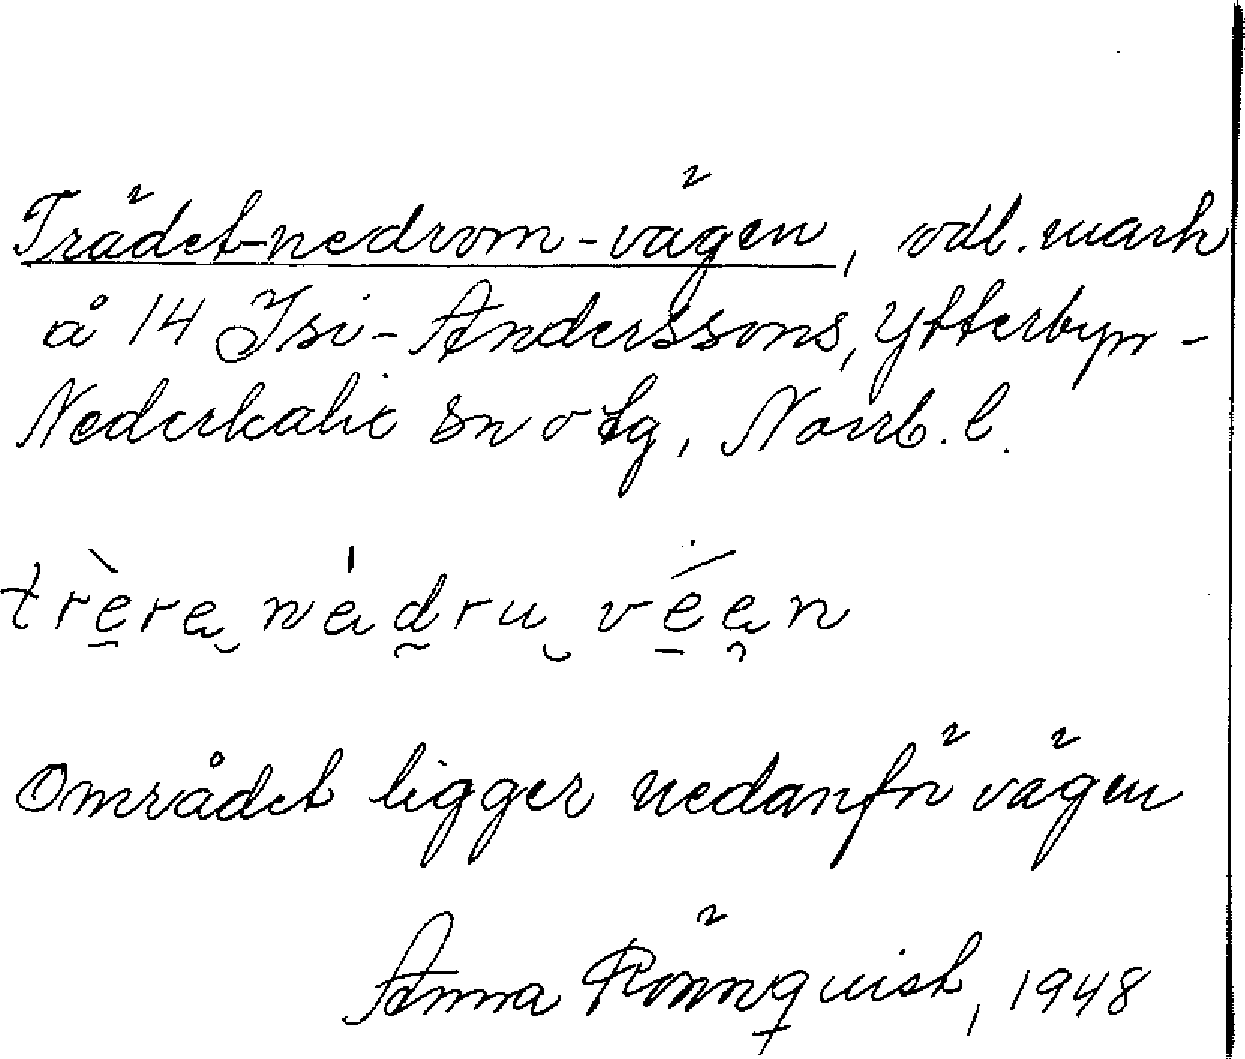 Trädet-nedrom-vägen, odl. mark
å 14 Isi-Anderssons, Ytterbyn -
Nederkalix sn o tg, Norrb. l.
trère nédru véen
Området ligger nedanför vägen
Anna Rönnquist, 1948